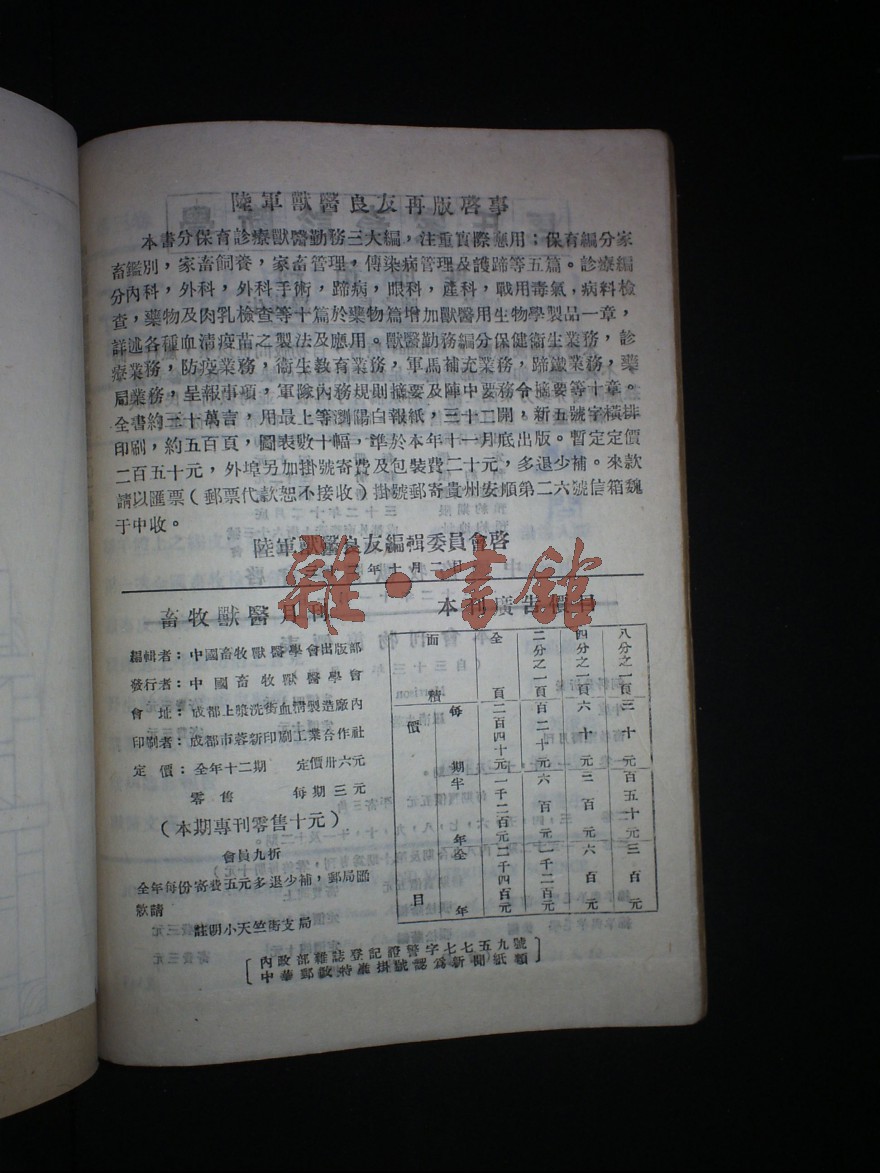 陸軍獸醫良友再版啓事
本書分保育診療獸醫勤務三大編，注重實際應用；保育編分家
畜鑑別，家畜飼養，家畜管理，傳染病管理及護蹄等五篇。診療編
分內科，外科，外科手術，蹄病，眼科，產科，戰用毒氣，病料檢
查，藥物及肉乳檢查等十篇於藥物篇增加獸醫用生物學製品一章，
詳述各種血清疫苗之製法及應用。獸醫勤務編分保健衛生業務，診
療業務，防疫業務，衛生教育業務，軍馬補充業務，蹄鐵業務，藥
局業務，呈報事項，軍隊內務規則摘要及陣中要務令摘要等十章。
全書約三十萬言，用最上等瀏陽白報紙，三十二開，新五號字橫排
印刷，約五百頁，圖表數十幅，準於本年十一月底出版。暫定定價
二百五十元，外埠另加掛號寄費及包裝費二十元，多退少補。來款
請以匯票（郵票代款恕不接收）掛號郵寄貴州安順第二六號信箱魏
于中收。
陸軍獸醫良友編輯委員會啓
年十月二日
雜·書館
畜牧獸醫月刊
編輯者：中國畜牧獸醫學會出版部
發行者：中國畜牧獸醫學會
會址：成都上漿洗街血清製造廠內
印刷者：成都市蓉新印刷工業合作社
定價：全年十二期 定價卅六元
零售 每期三元
（本期專刊零售十元）
會員九折
全年每份寄費五元多退少補，郵局匯
欵請
註明小天竺街支局
本刊廣告價目
面積 全頁 二分之一頁 四分之一頁 八分之一頁
價目 每期 二百四十元 百二十元 六十元 三十元
半年 一千二百元 六百元 三百元 百五十元
全年 二千四百元 一千二百元 六百元 三百元
內政部雜誌登記證警字七七五九號
中華郵政特准掛號認爲新聞紙類